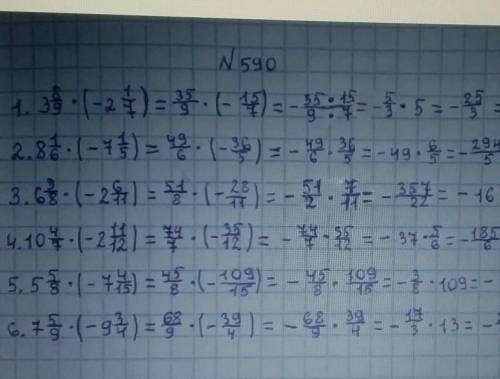 №590
1. 3 8/9 · (-2 1/7) = 35/9 · (-15/7) = - 35·15/9·7 = - 5/3 · 5 = - 25/3 =
2. 8 1/6 · (-7 1/5) = 49/6 · (-36/5) = - 49/6 · 36/5 = -49 · 6/5 = - 294/5
3. 6 3/8 · (-2 6/11) = 51/8 · (-28/11) = - 51/2 · 7/11 = - 357/22 = -16
4. 10 4/7 · (-2 11/12) = 74/7 · (-35/12) = - 74/7 · 35/12 = -37 · 5/6 = - 185/6
5. 5 5/8 · (-7 4/15) = 45/8 · (-109/15) = - 45/8 · 109/15 = - 3/8 · 109 = -
6. 7 5/9 · (-9 3/4) = 68/9 · (-39/4) = - 68/9 · 39/4 = - 17/3 · 13 = -